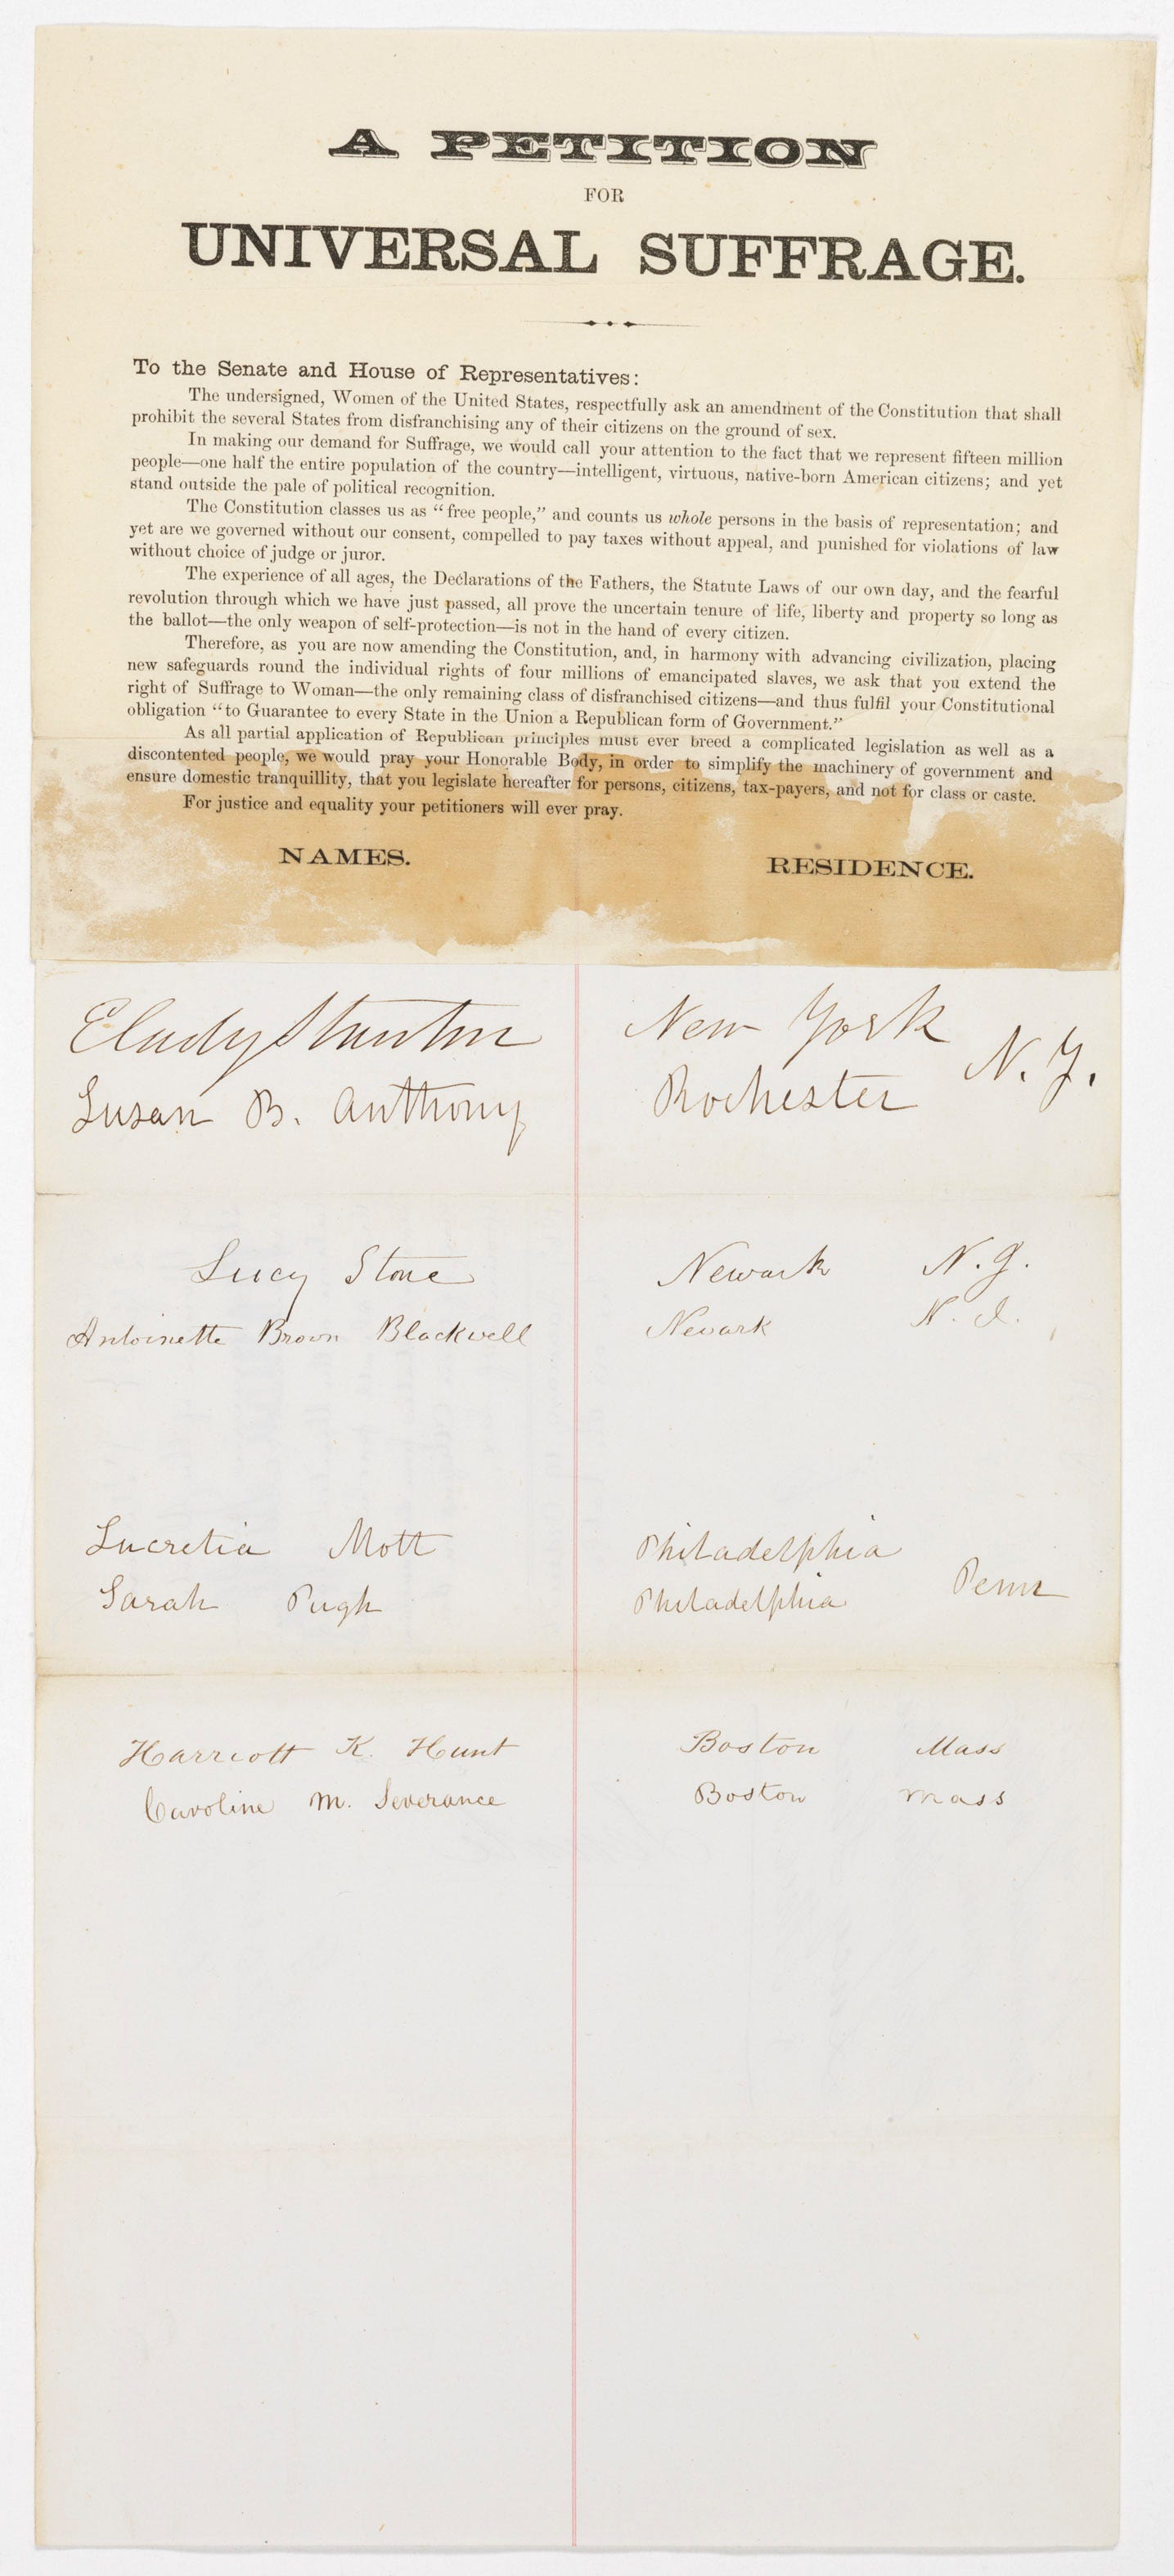 A PETITION
FOR
UNIVERSAL SUFFRAGE.
To the Senate and House of Representatives:
The undersigned, Women of the United States, respectfully ask an amendment of the Constitution that shall
prohibit the several States from disfranchising any of their citizens on the ground of sex.
In making our demand for Suffrage, we would call your attention to the fact that we represent fifteen million
people—one half the entire population of the country—intelligent, virtuous, native-born American citizens; and yet
stand outside the pale of political recognition.
The Constitution classes us as “free people,” and counts us whole persons in the basis of representation; and
yet are we governed without our consent, compelled to pay taxes without appeal, and punished for violations of law
without choice of judge or juror.
The experience of all ages, the Declarations of the Fathers, the Statute Laws of our own day, and the fearful
revolution through which we have just passed, all prove the uncertain tenure of life, liberty and property so long as
the ballot—the only weapon of self-protection—is not in the hand of every citizen.
Therefore, as you are now amending the Constitution, and, in harmony with advancing civilization, placing
new safeguards round the individual rights of four millions of emancipated slaves, we ask that you extend the
right of Suffrage to Woman—the only remaining class of disfranchised citizens—and thus fulfil your Constitutional
obligation “to Guarantee to every State in the Union a Republican form of Government.”
As all partial application of Republican principles must ever breed a complicated legislation as well as a
discontented people, we would pray your Honorable Body, in order to simplify the machinery of government and
ensure domestic tranquillity, that you legislate hereafter for persons, citizens, tax-payers, and not for class or caste.
For justice and equality your petitioners will ever pray.
NAMES. RESIDENCE.
ECadyStanton New York
Susan B. Anthony Rochester N.Y.
Lucy Stone Newark N.J.
Antoinette Brown Blackwell Newark N. J.
Lucretia Mott Philadelphia
Sarah Pugh Philadelphia Penn
Harriott K. Hunt Boston Mass
Caroline M. Severance Boston Mass